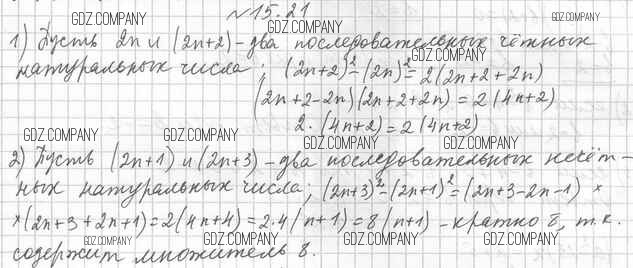 №15.21
GDZ.COMPANY GDZ.COMPANY
1) Пусть 2n и (2n+2) – два последовательных чётных
GDZ.COMPANY
натуральных числа; (2n+2)²-(2n)²=2(2n+2+2n)
(2n+2-2n)(2n+2+2n)=2(4n+2)
2·(4n+2)=2(4n+2)
GDZ.COMPANY GDZ.COMPANY GDZ.COMPANY GDZ.COMPANY
2) Пусть (2n+1) и (2n+3) – два последовательных нечёт-
GDZ.COMPANY GDZ.COMPANY
ных натуральных числа; (2n+3)²-(2n+1)²=(2n+3-2n-1)×
×(2n+3+2n+1)=2(4n+4)=2·4(n+1)=8(n+1) – кратно 8, т.к.
GDZ.COMPANY GDZ.COMPANY GDZ.COMPANY GDZ.COMPANY
содержит множитель 8.